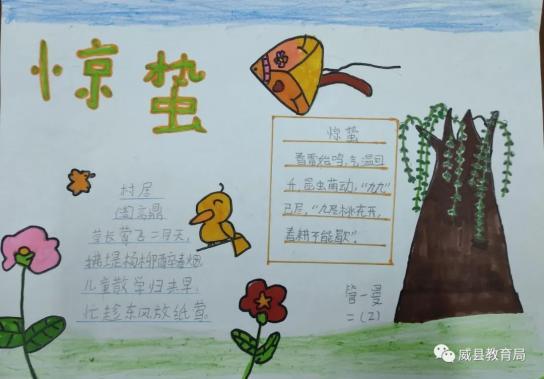 惊蛰
惊蛰
春雷始鸣,气温回
升,昆虫萌动,"九九"
已尽,"九尽桃花开,
春耕不能歇"。
村居
高鼎
草长莺飞二月天,
拂堤杨柳醉春烟。
儿童散学归来早,
忙趁东风放纸鸢。
管一曼
二(2)
威县教育局